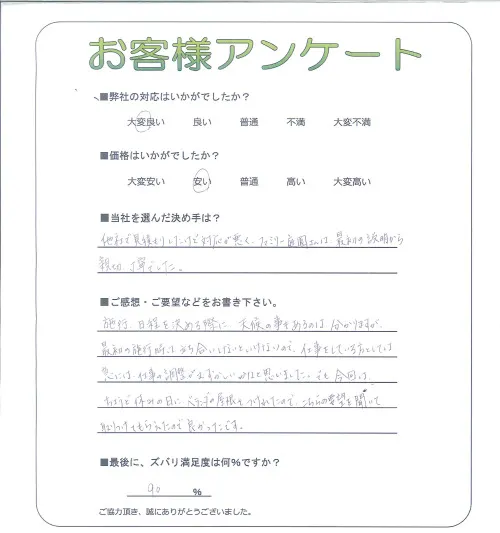 お客様アンケート
■弊社の対応はいかがでしたか？
大変良い 良い 普通 不満 大変不満
■価格はいかがでしたか？
大変安い 安い 普通 高い 大変高い
■当社を選んだ決め手は？
他社で見積もりしたけど対応が悪く、ファミリー庭園さんは、最初の説明から
親切、丁寧でした。
■ご感想・ご要望などをお書き下さい。
施行、日程を決める際に、天候の事もあるのは分かりますが、
最初の施行時は立ち合いしないといけないので、仕事をしている方としては
急には、仕事の調整がむずかしいかなと思いました。でも今回は、
ちょうど休みの日に、の屋根をつけれたので、こちらの要望を聞いて
もらえたので良かったです。
■最後に、ズバリ満足度は何％ですか？
90 ％
ご協力頂き、誠にありがとうございました。